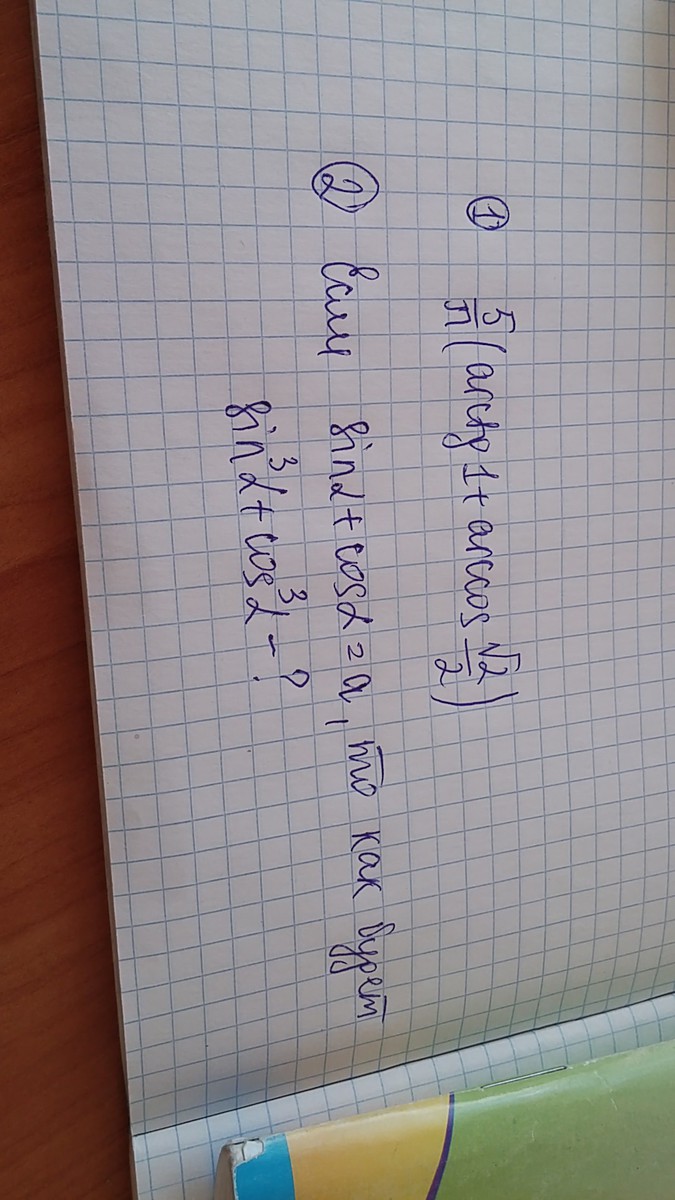 ① 5/π (arctg 1 + arccos √2/2)
② Если sinα + cosα = a, то как будет
sin³α + cos³α - ?